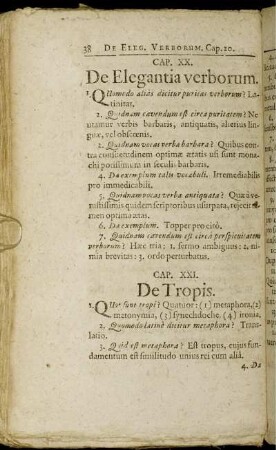 38 DE ELEG. VERBORUM, Cap. 20.
CAP. XX.
De Elegantia verborum.
1. QUomodo aliàs dicitur puritas verborum? La-
tinitas.
2. Quidnam cavendum est circa puritatem? Ne
utamur verbis barbaris, antiquatis, alterius lin-
guæ, vel obscenis.
3. Quidnam vocas verba barbara? Quibus con-
tra consuetudinem optimæ ætatis usi sunt mona-
chi potissimùm in seculis barbaris.
4. Da exemplum talis vocabuli. Irremediabilis
pro immedicabili.
5. Quidnam vocas verba antiquata? Quæ à ve-
tustissimis quidem scriptoribus usurpata, rejecit
men optima ætas.
6. Da exemplum. Topper pro citò.
7. Quidnam cavendum est circà perspicuitatem
verborum? Hæc tria: 1. sermo ambiguus: 2. ni-
mia brevitas: 3. ordo perturbatus.
CAP. XXI.
De Tropis.
1. QUot sunt tropi? Quatuor: (1) metaphora, (2)
metonymia, (3) synecdoche. (4) ironia.
2. Quomodo latinè dicitur metaphora? Trans-
latio.
3. Quid est metaphora? Est tropus, cujus fun-
damentum est similitudo unius rei cum aliâ.
4. Da